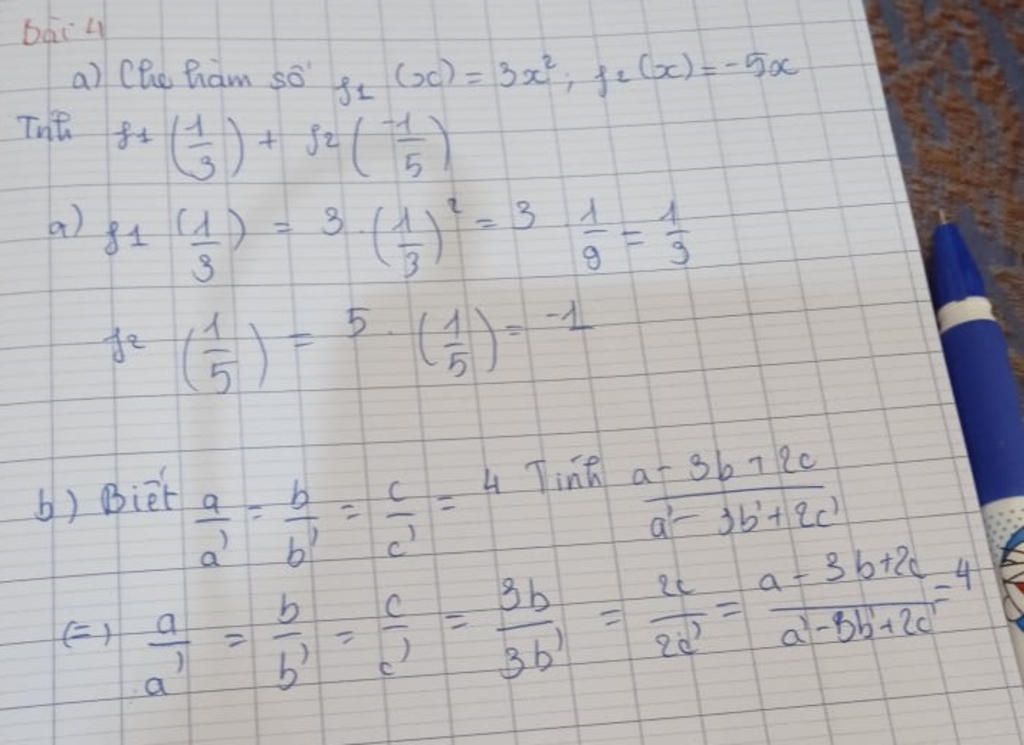 bài 4
a) Cho hàm số f1 (x) = 3x²; f2(x) = -5x
Tnh f1 (1/3) + f2 (-1/5)
a) f1 (1/3) = 3 . (1/3)² = 3 1/9 = 1/3
f2 (1/5) = 5 . (1/5) = -1
b) Biết a/a' = b/b' = c/c' = 4 Tính (a - 3b + 2c)/(a' - 3b' + 2c')
(=) a/a' = b/b' = c/c' = 3b/3b' = 2c/2c' = (a - 3b + 2c)/(a' - 3b' + 2c') = 4